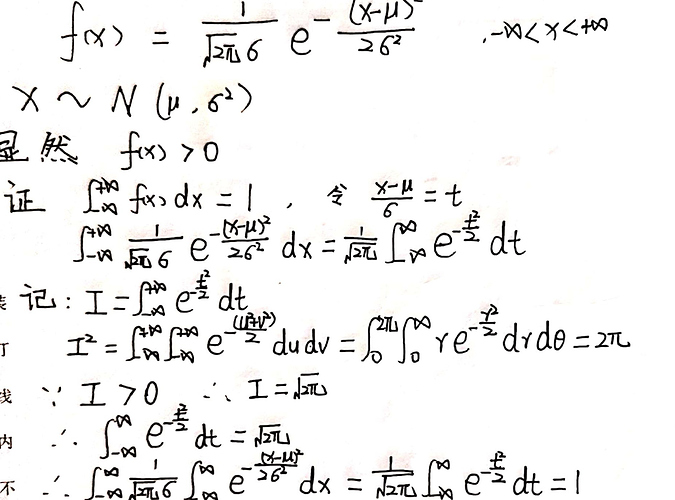 f(x) = \frac{1}{\sqrt{2π}6} e^{-\frac{(x-μ)^2}{26^2}} , -∞<x<+∞
X ~ N(μ, 6²)
显然 f(x) > 0
证 ∫_{-∞}^{+∞} f(x) dx = 1 , 令 \frac{x-μ}{6} = t
∫_{-∞}^{+∞} \frac{1}{\sqrt{2π}6} e^{-\frac{(x-μ)^2}{26^2}} dx = \frac{1}{\sqrt{2π}} ∫_{-∞}^{∞} e^{-\frac{t^2}{2}} dt
装 记: I = ∫_{-∞}^{+∞} e^{-\frac{t^2}{2}} dt
订 I² = ∫_{-∞}^{+∞} ∫_{-∞}^{+∞} e^{-\frac{(u^2+v^2)}{2}} du dv = ∫_0^{2π} ∫_0^{∞} r e^{-\frac{r^2}{2}} dr dθ = 2π
线 ∵ I > 0 ∴ I = \sqrt{2π}
内 ∴ ∫_{-∞}^{∞} e^{-\frac{t^2}{2}} dt = \sqrt{2π}
不 ∴ ∫_{-∞}^{∞} \frac{1}{\sqrt{2π}6} ∫_{-∞}^{∞} e^{-\frac{(x-μ)^2}{26^2}} dx = \frac{1}{\sqrt{2π}} ∫_{-∞}^{∞} e^{-\frac{t^2}{2}} dt = 1